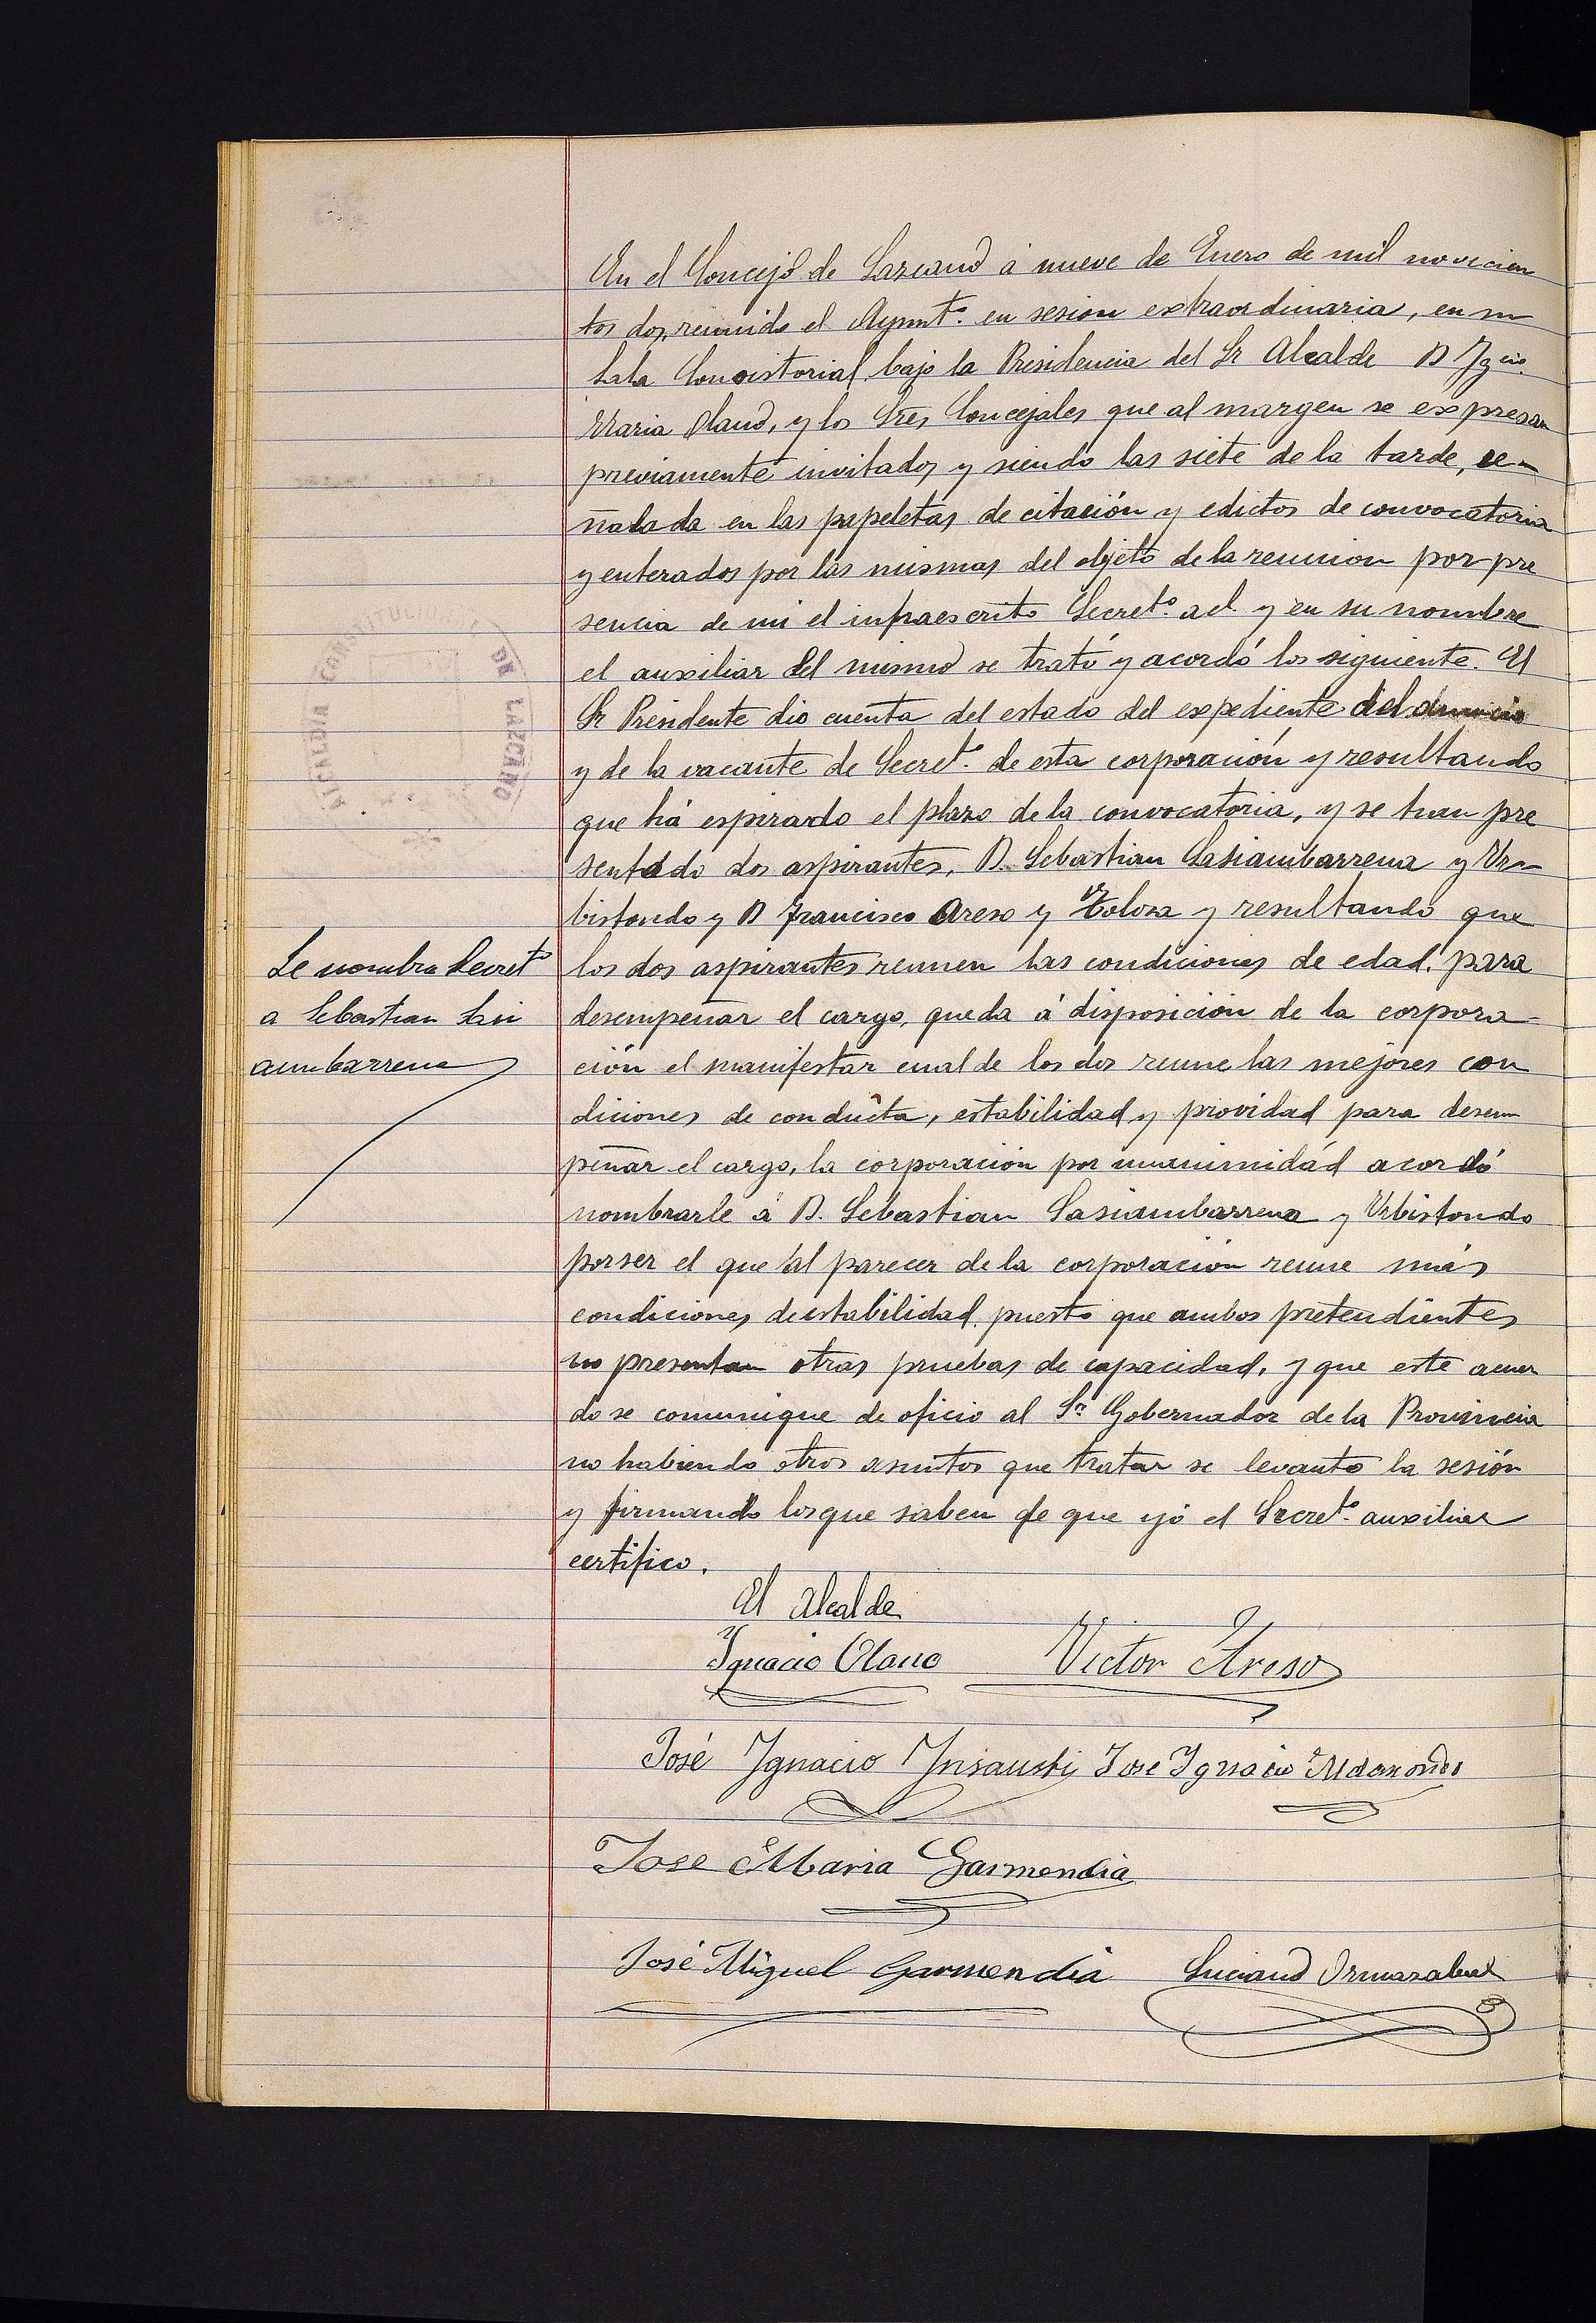 En el Concejo de Lazcano á nueve de Enero de mil novecien
tos dos, reunido el Aynmtº. en sesion extraordinaria, en su
Sala Consistorial, bajo la Presidencia del Sr Alcalde D Igcio.
Maria Olano, y los Sres Concejales que al margen se expresan
previamente invitados y siendo las siete de la tarde, se-
ñalada en las papeletas de citación y edictos de convocatoria
y enterados por las mismas del objeto de la reunion por pre
sencia de mi el infraescrito Secretº. acl. y en su nombre
el auxiliar del mismo se trató y acordó los siguiente. El
Sr Presidente dio cuenta del estado del expediente del anuncio
y de la vacante de Secretº. de esta corporación y resultando
que há espirardo el plazo de la convocatoria, y se han pre
sentado dos aspirantes, D. Sebastian Sasiambarrena y Ur-
bistondo y D Francisco Areso y Tolosa y resultando que
los dos aspirantes reunen las condiciones de edad, para
desempeñar el cargo, queda á disposición de la corpora-
ción el manifestar cual de los dos reune las mejores con
diciones de conducta, estabilidad y providad para desem
peñar el cargo, la corporación por unanimidád acordó
nombrarle á D. Sebastian Sasiambarrena y Urbistondo
por ser el que al parecer de la corporación reune más
condiciones de estabilidad, puesto que ambos pretendientes
no presentan otras pruebas de capacidad, y que este acuer
do se comunique de oficio al Sr. Gobernador de la Provincia
no habiendo otros asuntos que tratar se levanto la sesión
y firmando los que saben de que yó el Secretº. auxiliar
certifico.
Se nombra Secretº
a Sebastian Sasi
ambarrena
ALCALDIA CONSTITUCIO
DE LAZCANO
El Alcalde
Ignacio Olano Victor Areso
José Ygnacio Ynsausti Jose Ygnacio
Jose Maria Garmendia
José Miguel Garmendia Luciano Ormazabal